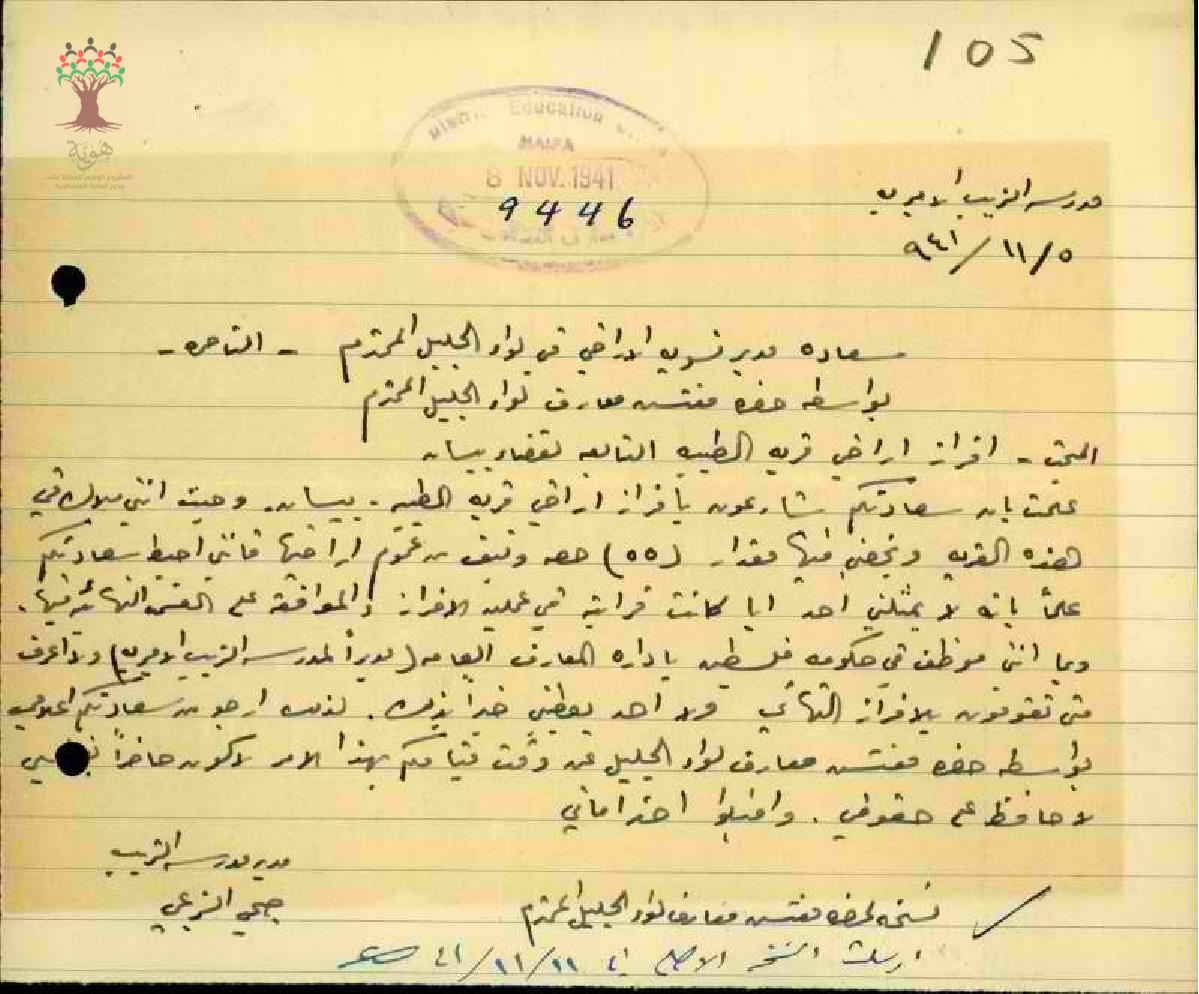 105
هوية
المشروع الوطني للحفاظ على
جذور العائلة الفلسطينية
District Education
HAIFA
8 NOV. 1941
9446
مدرسة الزيب الاميرية
٥/١١/٩٤١
سعادة مدير تسوية الاراضي في لواء الجليل المحترم - الناصرة -
بواسطة حضرة مفتش معارف لواء الجليل المحترم
المبحث - افراز اراضي قرية الطيبة التابعة لقضاء بيسان
علمت بان سعادتكم شارعون بافراز اراضي قرية الطيبة - بيسان. وحيث انني ملاك في
هذه القرية ويخصني فيها مقدار (٥٥) حصة ونيف من عموم اراضيها فانني احيط سعادتكم
علماً بانه لا يمثلني احد ايا كانت قرابته في عملية الافراز والموافقة على القسمة النهائية فيها.
وبما انني موظف في حكومة فلسطين بادارة المعارف العامة (مديراً لمدرسة الزيب الاميرية) ولا اعرف
متى تقومون بالافراز النهائي ولا احد يعطيني خبراً بذلك. لذلك ارجو من سعادتكم اعلامي
بواسطة حضرة مفتش معارف لواء الجليل عن وقت قيامكم بهذا الامر لاكون حاضراً بنفسي
لاحافظ على حقوقي. واقبلوا احترامي
مدير مدرسة الزيب
صبحي الزعبي
نسخة لحضرة مفتش معارف لواء الجليل المحترم
ارسلت النسخة الاصلية في ١١/١١/٤١